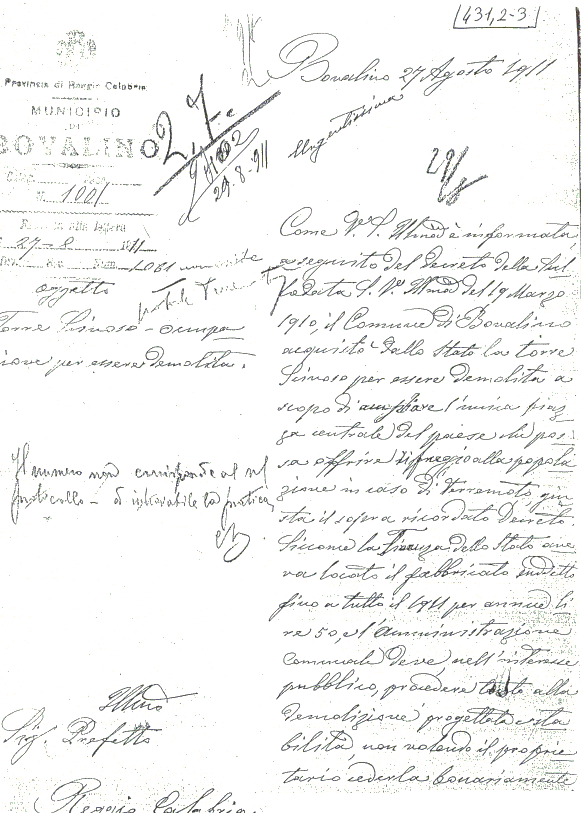 431,2-3
Bovalino 27 Agosto 1911
Provincia di Reggio Calabria
MUNICIPIO
DI
BOVALINO
27
29.8.911
Urgentissima
N. 1001
27-8 1911
Num. 1061
oggetto
Torre Sinoso - occupa
zione per essere demolita.
Come V.S. Ill.ma è informata
a seguito del Decreto della Sul
lodata S.V. Ill.ma del 19 Marzo
1910, il Comune di Bovalino
acquistò dallo Stato la torre
Sinoso per essere demolita a
scopo di ampliare l'unica piaz
za centrale del paese che pos
sa offrire rifugio alla popola
zione in caso di terremoto, giu
sta il sopra ricordato Decreto.
Siccome la Finanza dello Stato ave
va locato il fabbricato suddetto
fino a tutto il 1911 per annue li
re 50, e l'amministrazione
Comunale deve, nell'interesse
pubblico, procedere tosto alla
demolizione progettata e sta
bilita, non volendo il proprie
tario cederla bonariamente
Il numero non corrisponde al
protocollo - è introvabile la pratica
Ill.mo
Sig. Prefetto
Reggio Calabria